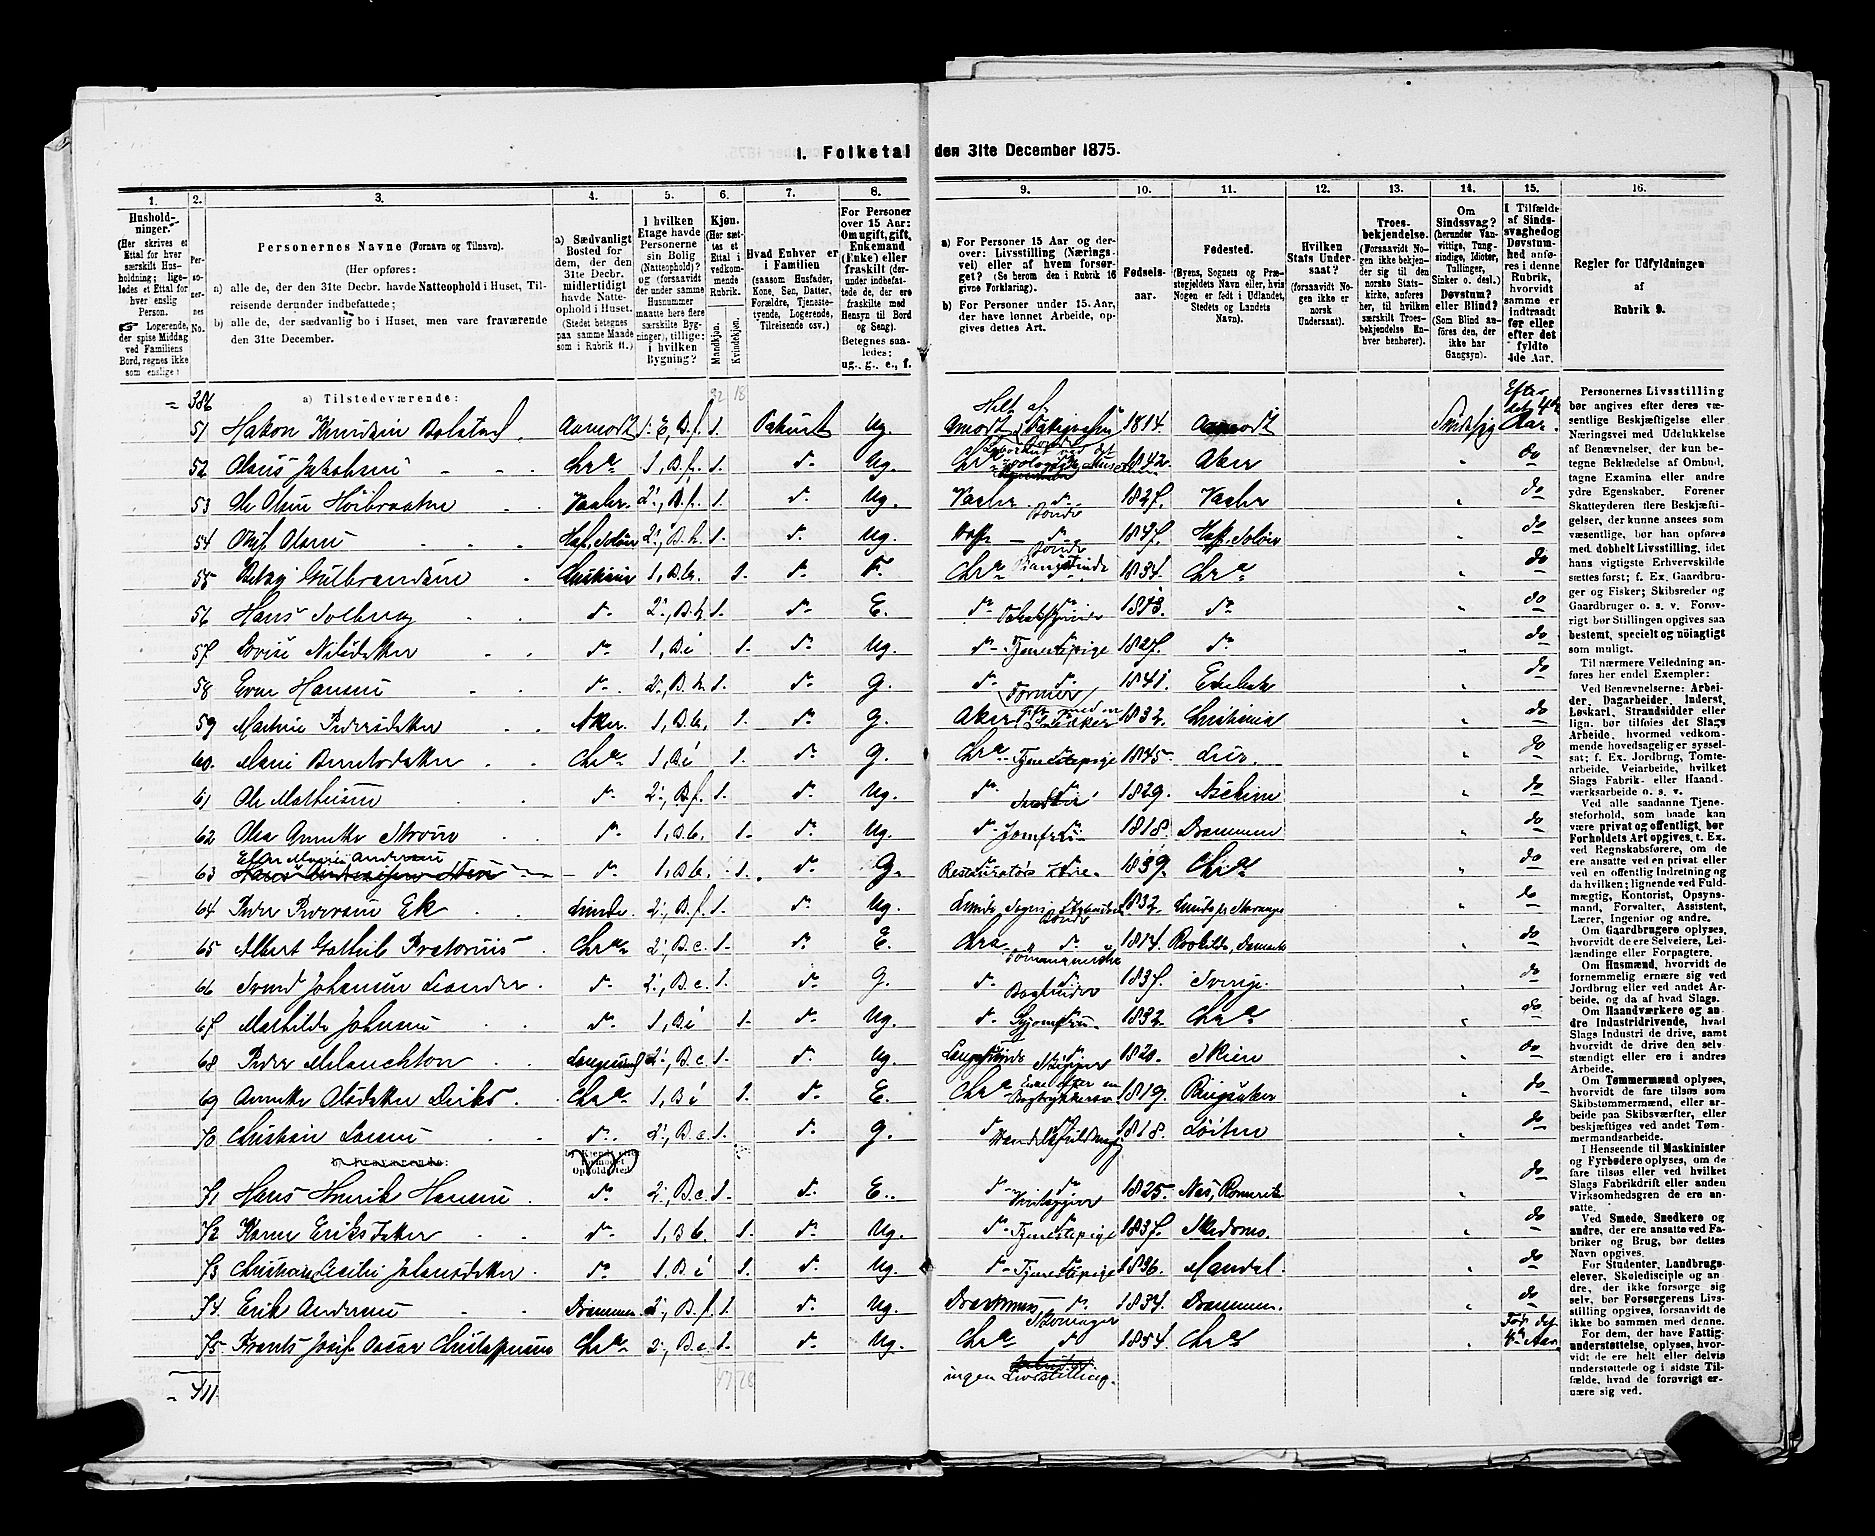 1. Folketal den 31te December 1875.
1. 2. 3. 4. 5. 6. 7. 8. 9. 10. 11. 12. 13. 14. 15. 16.
Hushold-
ninger.
(Her skrives et
Ettal for hver
særskilt Hus-
holdning; lige-
ledes et Ettal for
hver enslig
Person.
☞ Logerende,
der spise Middag
ved Familiens
Bord, regnes ikke
som enslige)
Per-
so-
ner-
nes
No.
Personernes Navne (Fornavn og Tilnavn).
(Her opføres:
a) alle de, der den 31te Decbr. havde Natteophold i Huset, Til-
reisende derunder indbefattede;
b) alle de, der sædvanlig bo i Huset, men vare fraværende
den 31te December.
a) Sædvanligt
Bosted for
dem, der den
31te Decbr.
midlertidigt
havde Natte-
ophold i Huset.
(Stedet betegnes
paa samme Maade
som i Rubrik 11.)
I hvilken
Etage havde
Personerne
sin Bolig
(Natteophold)?
og (forsaavidt
der under samme
Husnummer
maatte høre flere
særskilte Byg-
ninger), tillige:
i hvilken
Bygning?
Kjøn.
(Her sæt-
tes et
Ettal i
vedkom-
mende
Rubrik.)
Mandkjøn.
Kvindekjøn.
Hvad Enhver er
i Familien
(saasom Husfader,
Kone, Søn, Datter,
Forældre, Tjeneste-
tyende, Logerende,
Tilreisende osv.)
For Personer
over 15 Aar:
Om ugift, gift,
Enkemand
(Enke) eller
fraskilt (der-
under indbefat-
tede de, der ere
fraskilte med
Hensyn til Bord
og Seng).
Betegnes saa-
ledes:
ug., g., e., f.
a) For Personer 15 Aar og der-
over: Livsstilling (Nærings-
vei) eller af hvem forsør-
get? (Se herom den i Rubrik 16
givne Forklaring).
b) For Personer under 15 Aar,
der have lønnet Arbeide, op-
gives dettes Art.
Fødsels-
aar.
Fødested.
(Byens, Sognets og Præ-
stegjeldets Navn eller, hvis
Nogen er født i Udlandet,
Stedets og Landets
Navn).
Hvilken
Stats Under-
saat?
(forsaavidt No-
gen ikke er
norsk
Undersaat).
Troes-
bekjendelse.
(Forsaavidt No-
gen ikke bekjen-
der sig til den
norske Stats-
kirke, anføres
her, til hvilken
særskilt Troes-
bekjendelse En-
hver henhører).
Om
Sindssvag?
(herunder Van-
vittige, Tung-
sindige, Idioter,
Tullinger,
Sinker o. desl.)
Døvstum?
eller Blind?
(Som Blind an-
føres den, der
ikke har
Gangsyn).
I Tilfælde
af Sinds-
svaghed og
Døvstum-
hed anfø-
res i denne
Rubrik,
hvorvidt
samme er
indtraadt
før eller
efter det
fyldte
4de Aar.
Regler for Udfyldningen
af
Rubrik 9.
386 a) Tilstedeværende: 32 18
51 Hakon Knudsen Bolstad Aamodt 1. E, B. f. 1. Patient Ug. 1814. Aamodt Sindssyg Efter det 4de Aar.
52 Olaus Jakobsen Chra 1, B. f. 1. d. Ug. Chra 1842. Aker do
53 Ole Olsen Høibraaten Vaaler. 2., B. f. 1. d. Ug. Vaaler Bonde 1827. Vaaler do
54 Olsen 2., B. h. 1. d. Ug. Bonde 1847. Hof, Solør do
55 Betsy Gulbrandsen Christiania 1, B. b. 1. d. F. Chra 1834. Chra do
56 Hans Solberg d. 2., B. h. 1. d. E. d. do
57 Lovise Nilsdatter d. 1, B. i 1. d. Ug. d. Tjenestepige 1827. d. do
58 Even Hansen d. 2., B. h. 1. d. G. d. Former 1841. do
59 Martine Pedersdatter Aker. 1, B. b. 1. d. G. Aker 1832. Christiania do
60. Marie Berntsdatter Chra 1, B. i 1. d. G. Chra Tjenestepige 1845. Lier. do
61 Ole Mathisen d. 2., B. f. 1. d. Ug. d. 1829. do
62 Olea d. 1, B. b. 1. d. Ug. d. Jomfru 1818. Drammen do
63 Marie Andersen d. 1, B. b. 1. d. G. Restauratør 1839. Chra do
64 Peder Pedersen Ek 2., B. f. 1. d. Ug. Bonde 1832. do
65 Albert Gotlieb Pretorius Chra 2., B. c. 1. d. E. Chra 1814. Roskilde, Danmark do
66 Svend Johansen d. 2., B. c. 1. d. G. d. Bogbinder 1837. Sverige. do
67 Mathilde Johnsen d. 1, B. i 1. d. Ug. d. 1832. Chra do
68 Peder Melanchton Langesund 2., B. c. 1. d. Ug. Langesunds Skipper 1820. Skien do
69 Annike Olsdatter Dirks Chra 1, B. i 1. d. E. Chra Enke efter en Bogtrykkersv. 1819. Ringsaker do
70 Christian Larsen d. 2., B. c. 1. d. G. d. 1818. Løiten do
b) Fraværende:
b) Kjendt eller
formodet
Opholdssted
71 Hans Henrik Hansen d. 2., B. c. 1. d. E. d. 1825. Næs, Romerike do
72 Karen Eriksdatter d. 1, B. b. 1. d. Ug. d. Tjenestepige 1837. Skedsmo. do
73 Christiane Cecilie Johansdatter d. 1. B. i 1. d. Ug. d. Tjenestepige 1836. Mandal. do
74. Erik Andersen Drammen 2., B. f. 1. d. Ug. Drammen Skomager 1834. Drammen. do
75 Frants Josef Oscar Christoffersen Chra 2., B. c. 1. d. Ug. Chra 1854. Chra Før det 4de Aar.
411 47 28 ingen Livsstilling.
Personernes Livsstilling
bør angives efter deres væ-
sentlige Beskjæftigelse eller
Næringsvei med Udelukkelse
af Benævnelser, der kun be-
tegne Beklædelse af Ombud,
tagne Examina eller andre
ydre Egenskaber. Forener
Skatteyderen flere Beskjæfti-
gelser, der kunne ansees som
væsentlige, bør han opføres
med dobbelt Livsstilling, idet
hans vigtigste Erhvervskilde
sættes først; f. Ex. Gaardbru-
ger og Fisker; Skibsreder og
Gaardbruger o. s. v. Forøv-
rigt bør Stillingen opgives saa
bestemt, specielt og nöiagtigt
som muligt.
Til nærmere Veiledning an-
føres her endel Exempler:
Ved Benævnelserne: Arbei-
der, Dagarbeider, Inderst,
Løskarl, Strandsidder eller
lign. bør tilføies det Slags
Arbeide, hvormed vedkom-
mende hovedsagelig er syssel-
sat; f. Ex. Jordbrug, Tomte-
arbeide, Veiarbeide, hvilket
Slags Fabrik- eller Haand-
værksarbeide o. s. v.
Ved alle saadanne Tjene-
steforhold, som baade kan
være privat og offentligt, bør
Forholdets Art opgives, t. Ex.
ved Regnskabsførere, om de
ere ansatte ved en privat eller
ved en offentlig Indretning og
da hvilken; lignende ved Fuld-
mægtig, Kontorist, Opsyns-
mand, Forvalter, Assistent,
Lærer, Ingeniør og andre.
Om Gaardbrugere oplyses,
hvorvidt de ere Selveiere, Lei-
lændinge eller Forpagtere.
Om Husmænd, hvorvidt de
fornemmelig ernære sig ved
Jordbrug eller ved andet Ar-
beide, og da af hvad Slags.
Om Haandværkere og an-
dre Industridrivende, hvad
Slags Industri de drive, samt
hvorvidt de drive den selv-
stændigt eller ere i andres
Arbeide.
Om Tømmermænd oplyses,
hvorvidt de fare tilsøs som
Skibstømmermænd, eller ar-
beide paa Skibsværfter, eller
beskjæftiges ved andet Tøm-
mermandsarbeide.
I Henseende til Maskinister
og Fyrbødere oplyses, om de
fare tilsøs eller ved hvilket
Slags Fabrikdrift eller anden
Virksomhedsgren de ere an-
satte.
Ved Smede, Snedkere og
andre, der ere ansatte ved Fa-
briker og Brug, bør dettes
Navn opgives.
For Studenter, Landbrugs-
elever, Skoledisciple og an-
dre, der ikke forsørge sig
selv, bør Forsørgerens Livs-
stilling opgives, forsaavidt de
ikke bo sammen med denne.
For dem, der have Fattig-
understøttelse, oplyses, hvor-
vidt de ere helt eller delvis
understøttede og i sidste Til-
fælde, hvad de forøvrigt er-
nære sig ved.